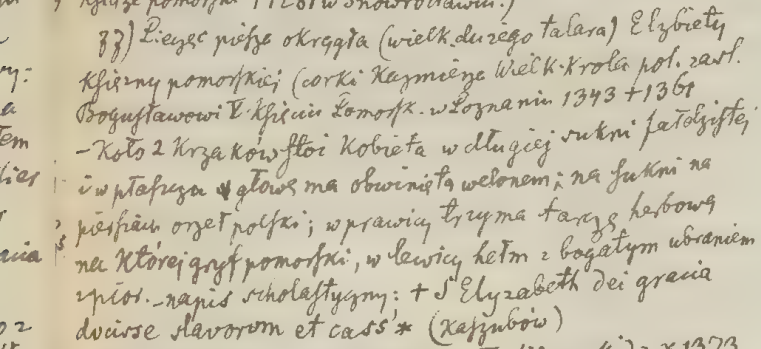 Książę pomorski 1287 w Inowrocławiu.)
zz) Pieczęć piesza okrągła (wielk. dużego talara) Elżbiety
Księżny pomorskiej (corki Kazmierza Wielk. Krola pol. zasł.
Bogusławowi V. Księciu Pomorsk. w Poznaniu 1343 + 1361
– Koło 2 Krzaków stoi Kobieta w długiej sukni fałdzistej
i w płaszczu głowę ma obwiniętą welonem; na sukni na
piersiach orzeł polski; w prawicy trzyma tarczę herbową
na Której gryf pomorski, w lewicy hełm z bogatym ubraniem
z piór. – napis scholastyczny: + S Elyzabeth dei gracia
ducisse slavorum et cass' * (Kaszubów)
1373